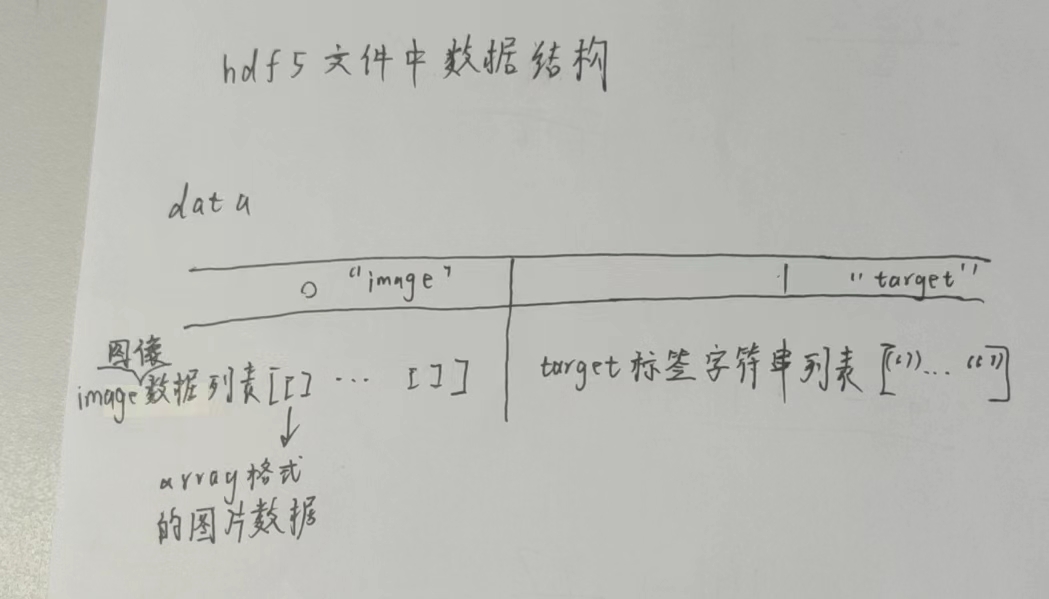 hdf5文件中数据结构
data
0 "image" 1 "target"
图像
image数据列表[[] ... []] target标签字符串列表[“”... “”]
array格式
的图片数据